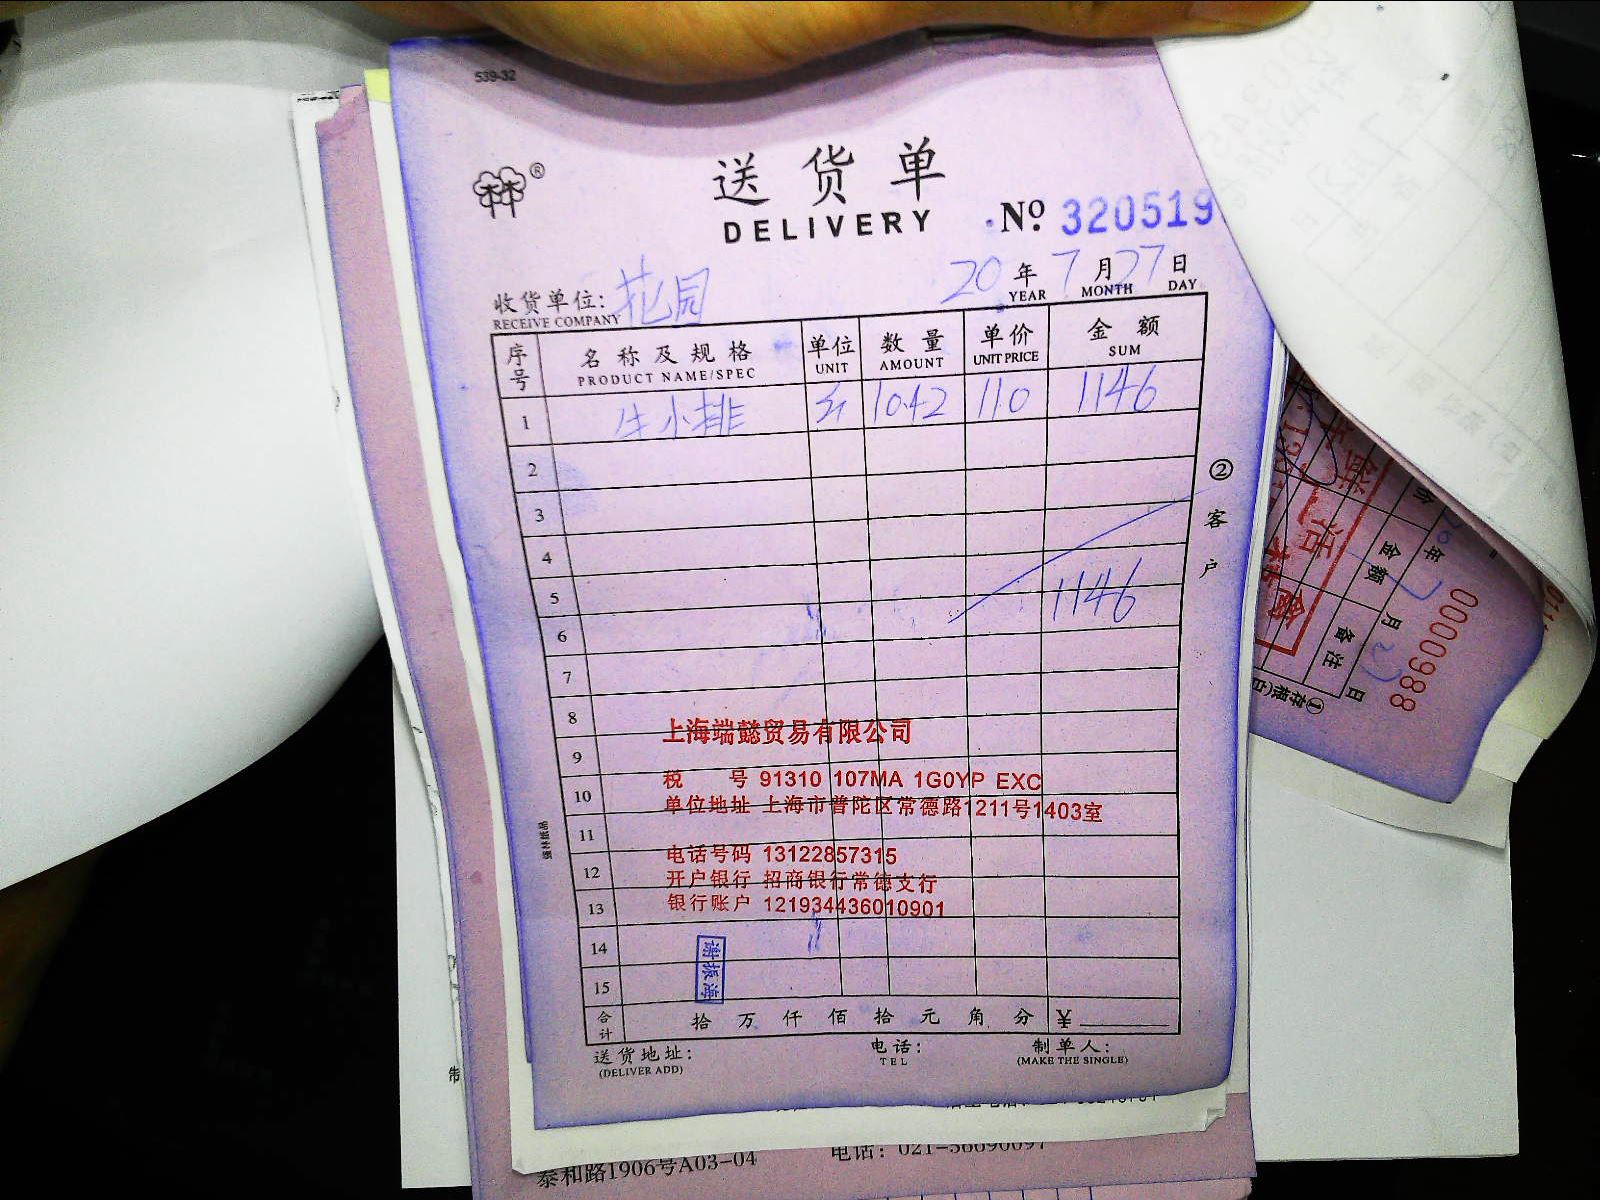 539-32
®
送货单
DELIVERY
№ 320519
收货单位: 花园
RECEIVE COMPANY
20 年 7 月 27 日
YEAR MONTH DAY
序号 名称及规格 单位 数量 单价 金额
PRODUCT NAME/SPEC UNIT AMOUNT UNIT PRICE SUM
1 牛小排 斤 10.42 110 1146
2
3
4
5 1146
6
7
8
上海端懿贸易有限公司
9
税 号 91310 107MA 1G0YP EXC
10
单位地址 上海市普陀区常德路1211号1403室
11
电话号码 13122857315
12
开户银行 招商银行常德支行
13
银行账户 121934436010901
14
15
合计 拾 万 仟 佰 拾 元 角 分 ¥
送货地址: 电话: 制单人:
(DELIVER ADD) TEL (MAKE THE SINGLE)
②客户
0000988
年 月 日
金额
备注
①存根(白)
泰和路1906号A03-04
电话: